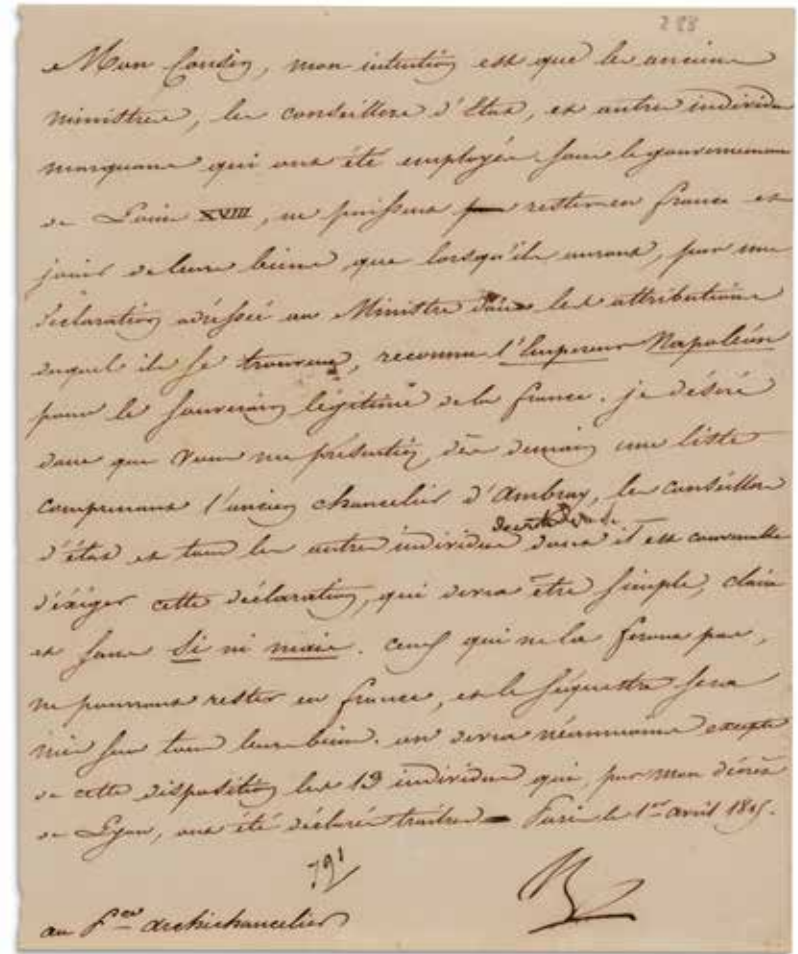 288
Mon Cousin, mon intention est que les anciens
ministres, les conseillers d'Etat, et autres individus
marquans qui ont été employés sous le gouvernement
de Louis XVIII, ne puissent rester en france et
jouir de leurs biens que lorsqu'ils auront, par une
déclaration adressée au Ministre dans les attributions
duquel ils se trouvent, reconnu l'Empereur Napoléon
pour le souverain légitime de la france. je désire
donc que vous me présentiez dès demain une liste
comprenant l'ancien chancelier d'Ambray, les conseillers
d'état et tous les autres individus dont il est convenable
d'éxiger cette déclaration, qui devra être simple, claire
et sans si ni mais. ceux qui ne la feront pas,
ne pourront rester en france, et le séquestre sera
mis sur tous leurs biens. on devra néanmoins excepter
de cette disposition les 13 individus qui, par mon décret
de Lyon, ont été déclarés traitres Paris le 1er avril 1815.
791
au Pce archichancelier